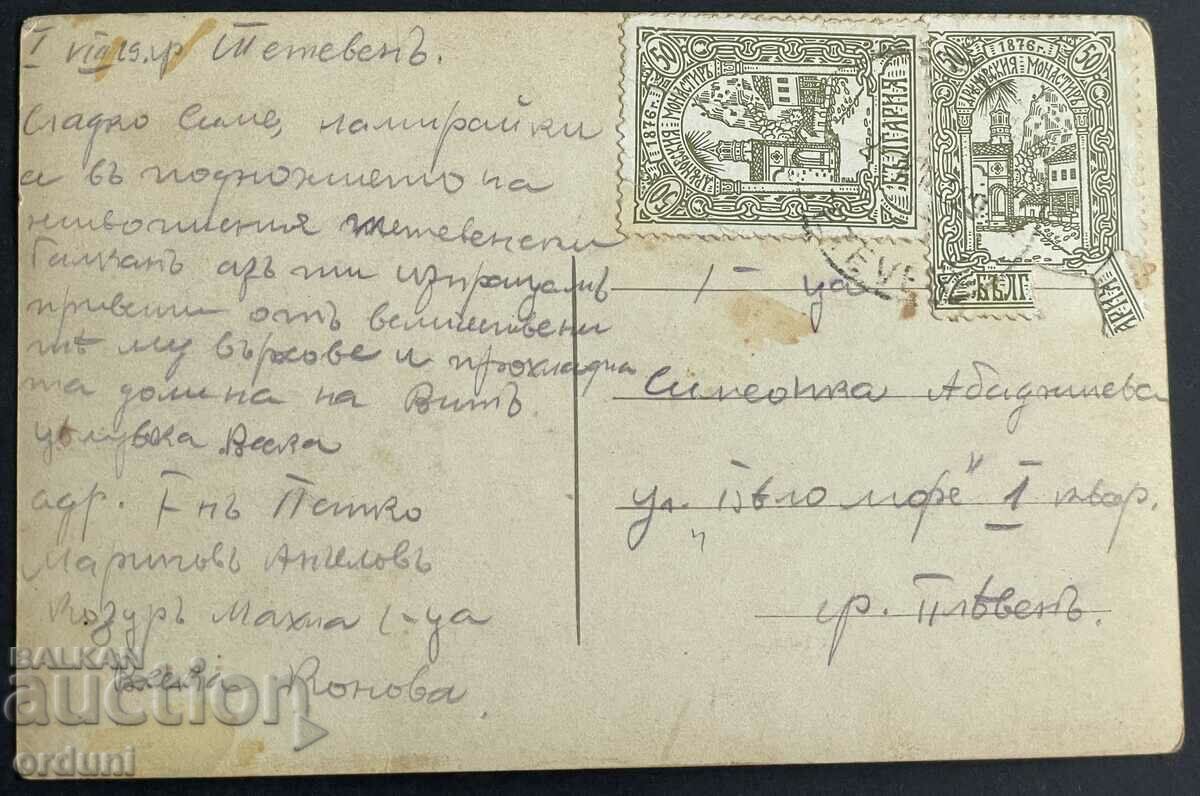 I VIII 29. гр Тетевенъ.
Сладко Симе, намирайки
а въ подножието на
живописния тетевенски
Балканъ азъ ти изпращамъ
привети отъ величествени
тѣ му върхове и прохладна
та долина на Витъ.
цѣлувка Веска
адр. Г-нъ Петко
Мариновъ Ангеловъ
Козуръ Махла Г-ца
Конова.
Г-ца
Симеонка Абаджиева
ул. "Бѣло море" I квар.
гр. Плѣвенъ.
1876 г.
ДРЯНОВСКИЯ МОНАСТИРЪ
50 50
БЪЛГАРИЯ
1876 г.
ДРЯНОВСКИЯ МОНАСТИРЪ
50 50
БЪЛГ
АРИЯ
BALKAN
auction
orduni